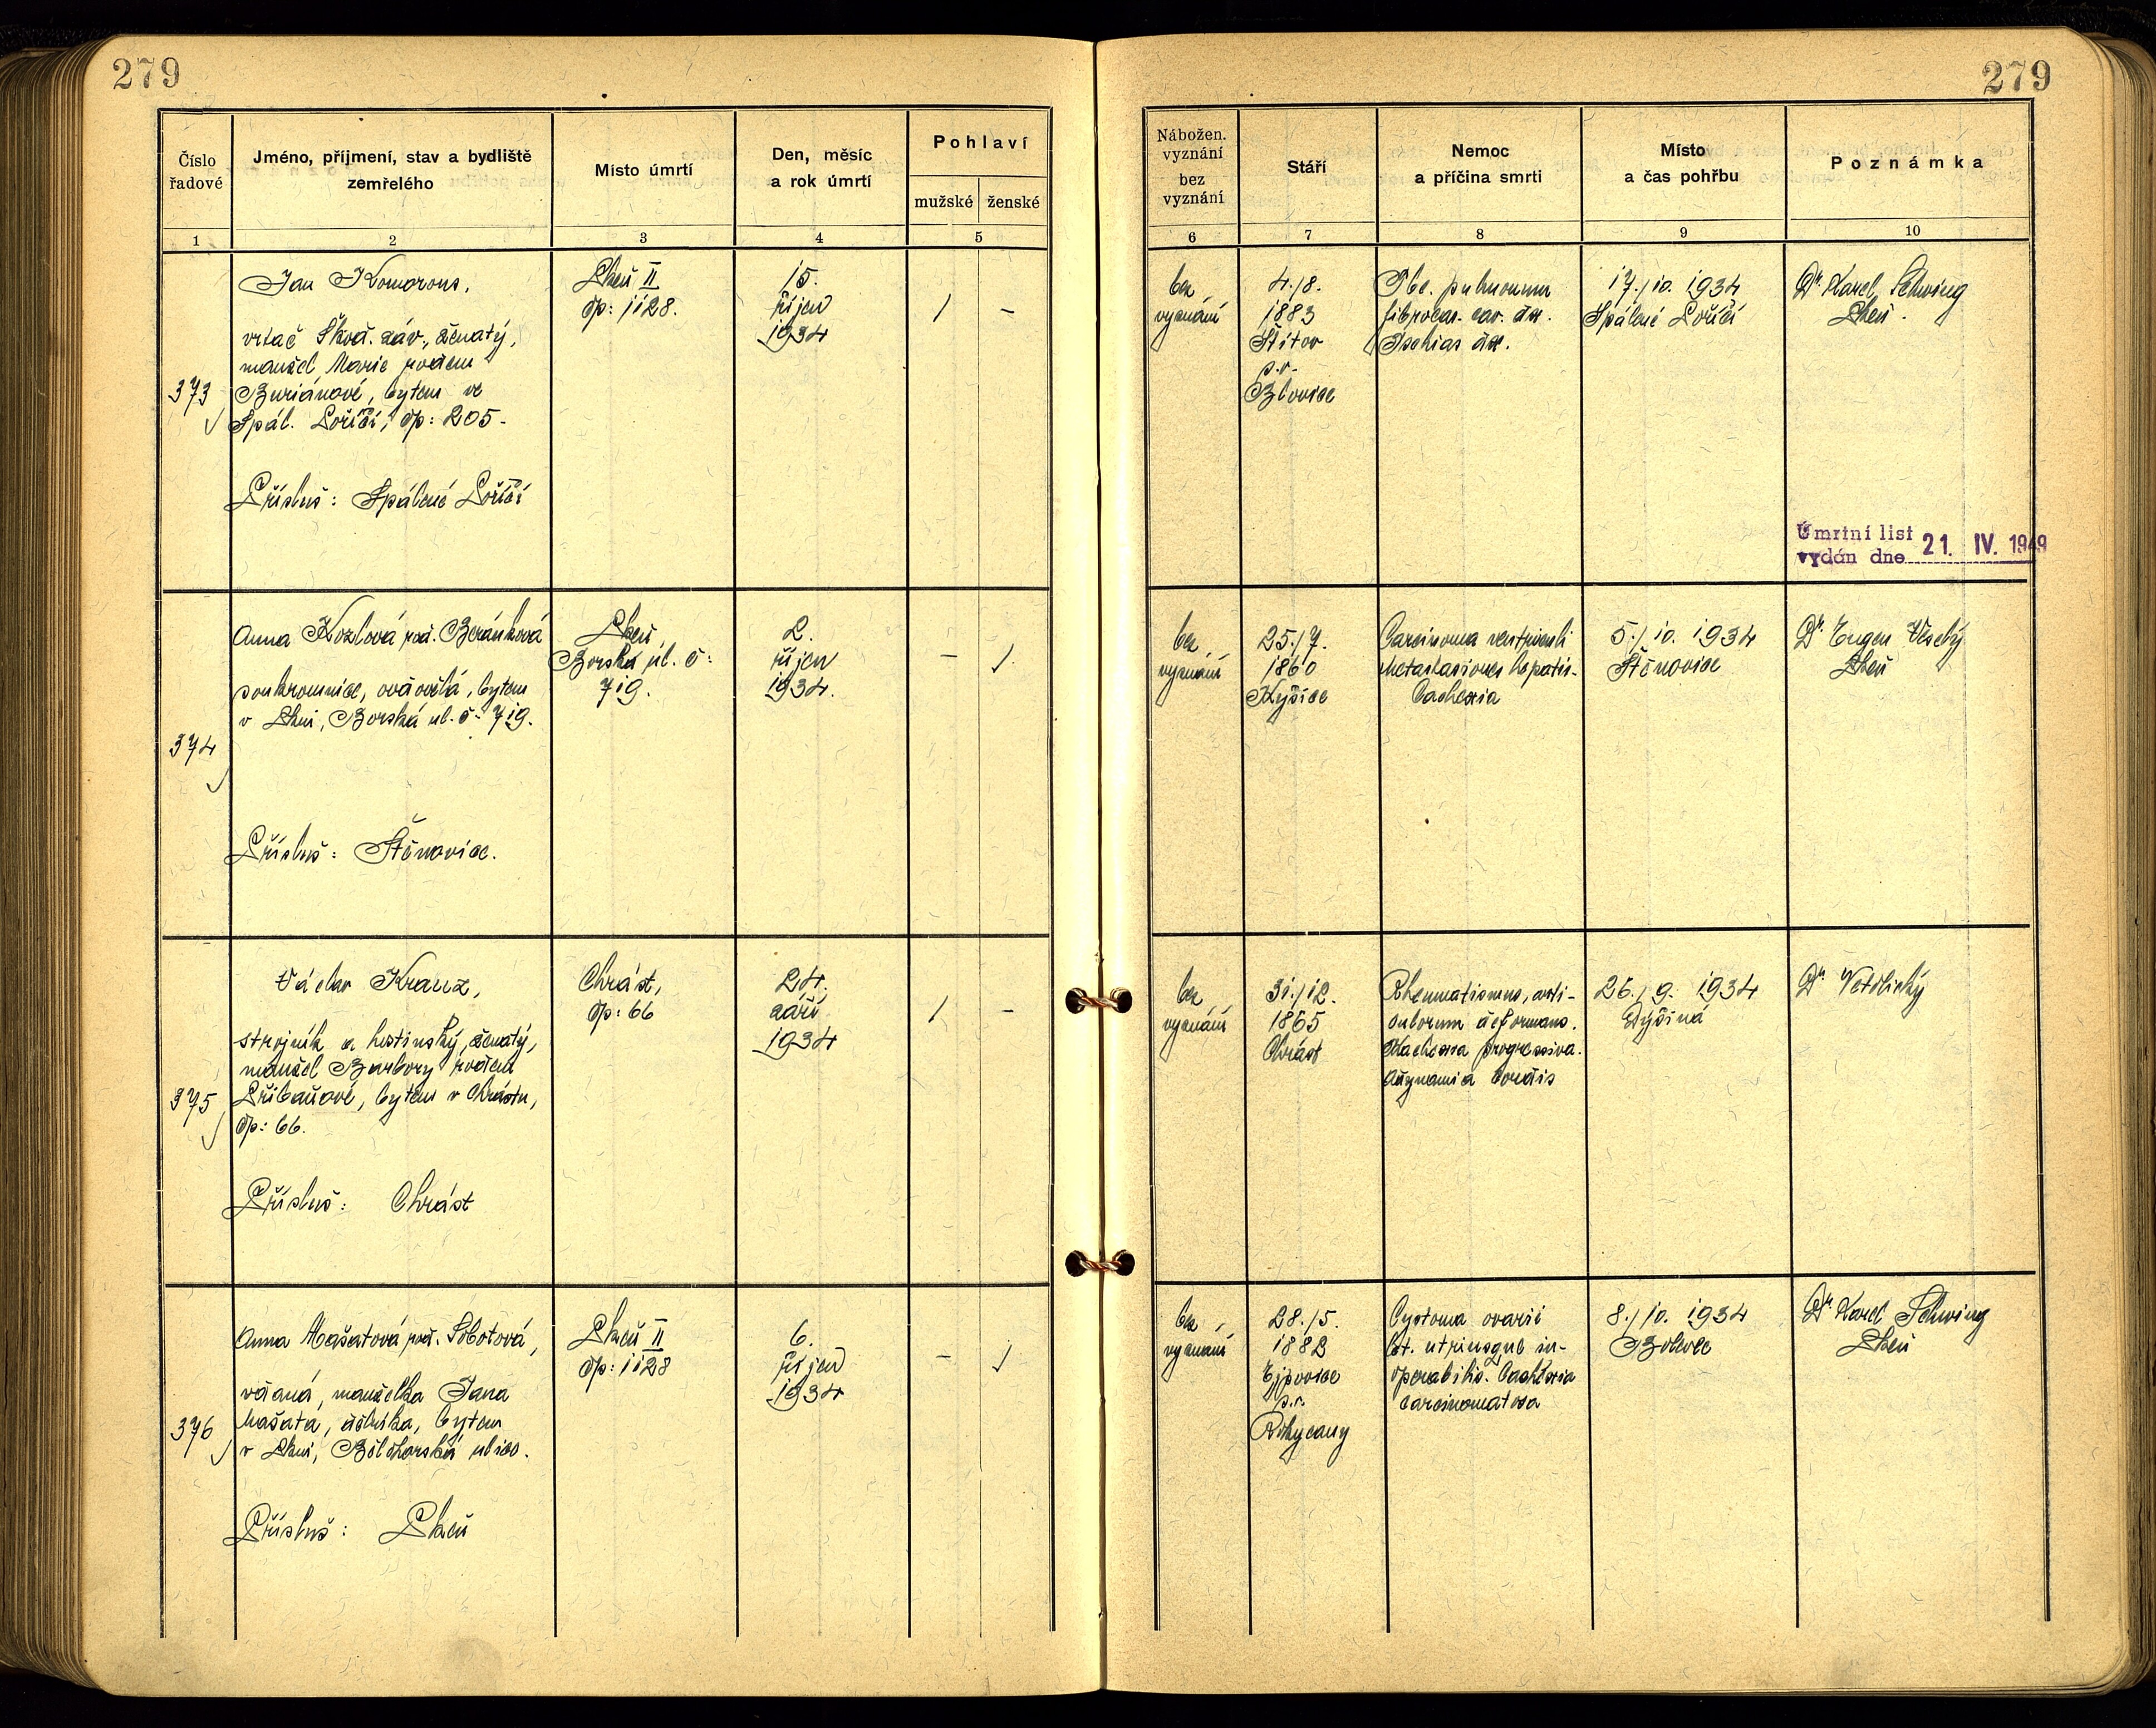 279
279
Číslo řadové
Jméno, příjmení, stav a bydliště zemřelého
Místo úmrtí
Den, měsíc a rok úmrtí
Pohlaví
mužské
ženské
1
2
3
4
5
Nábožen. vyznání
bez vyznání
Stáří
Nemoc a příčina smrti
Místo a čas pohřbu
Poznámka
6
7
8
9
10
373
Jan Komorous,
vrtač Škod. záv., ženatý,
manžel Marie rodem
Buriánové, bytem ve
Spál. Poříčí, čp: 205.
Přísluš: Spálené Poříčí
Plzeň II
čp: 1128.
15.
říjen
1934
/
–
bez
vyznání
4./8.
1883
Štítov
p.o.
Blovice
Tbc. pulmonum
fibrocas. cav. dx.
Ischias dx.
17./10. 1934
Spálené Poříčí
Dr. Karel Schwing
Plzeň.
Úmrtní list
vydán dne 21. IV. 1949
374
Anna Kozlová roz. Beránková
soukromnice, ovdovělá, bytem
v Plzni, Borská ul. č. 719.
Přísluš: Štěnovice.
Plzeň,
Borská ul. č:
719.
2.
říjen
1934.
–
✓
bez
vyznání
25./7.
1860
Kyšice
Carcinoma ventriculi
Metastasiones hepatis.
Cachexia
5./10. 1934
Štěnovice
Dr. Eugen Veselý
Plzeň
375
Václav Kranz,
strojník a hostinský, ženatý,
manžel Barbory rodem
bytem v Chrástu,
čp: 66.
Přísluš: Chrást
Chrást,
čp: 66
24.
září
1934
/
–
bez
vyznání
31./12.
1865
Chrást
Rheumatismus, arti-
culorum deformans.
Kachexia progressiva.
Adynamia cordis
26./9. 1934
Dýšiná
Dr.
376
Anna Mašatová roz. Sobotová,
vdaná, manželka Jana
Mašata, dělníka, bytem
v Plzni, Bělohorská ulice.
Přísluš: Plzeň
Plzeň II
čp: 1128
6.
říjen
1934
–
✓
bez
vyznání
28./5.
1882
Ejpovice
p.o.
Rokycany
Cystoma ovarii
lat. utriusque in-
operabilis. Cachexia
carcinomatosa
8./10. 1934
Bolevec
Dr. Karel Schwing
Plzeň